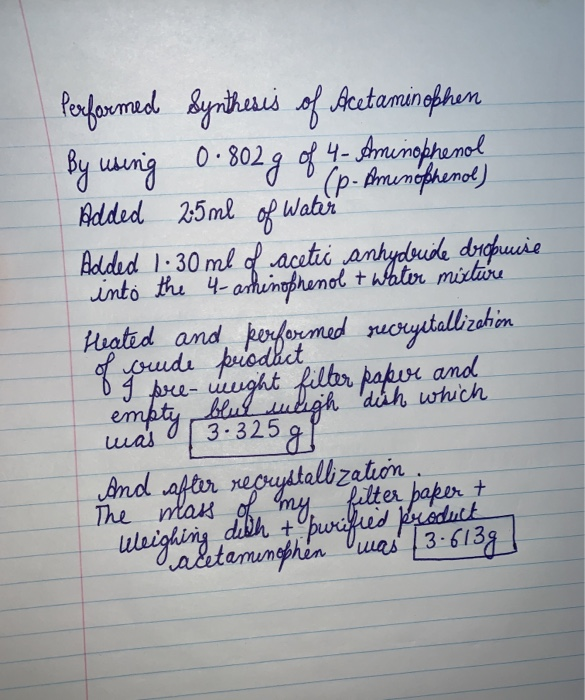 Performed Synthesis of Acetaminophen
By using 0.802g of 4-Aminophenol
(p-Aminophenol)
Added 2.5ml of Water
Added 1.30 ml of acetic anhydride dropwise
into the 4-aminophenol + water mixture
Heated and performed recrystallization
of crude product
I pre-weight filter paper and
empty blue weigh dish which
was 3.325g
And after recrystallization.
The mass of my filter paper +
Weighing dish + purified product
acetaminophen was 3.613g